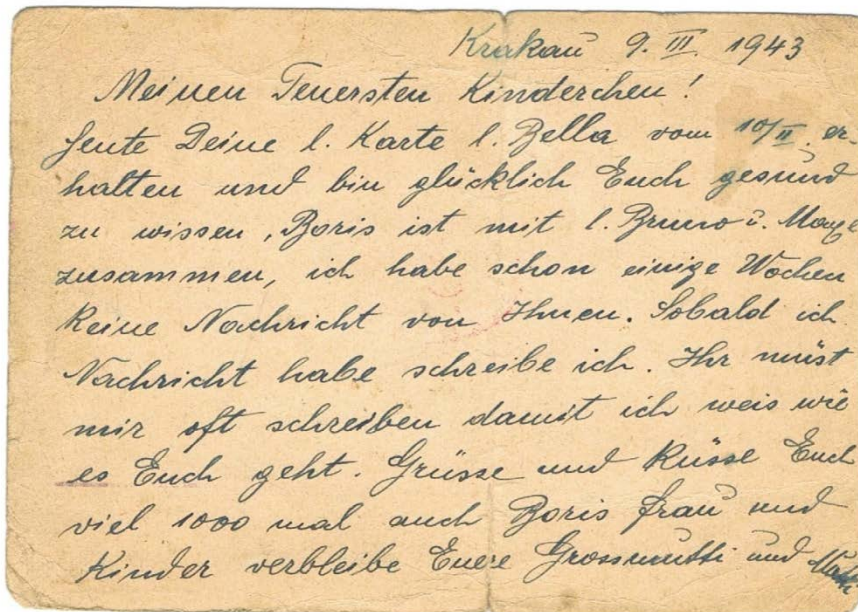 Krakau 9. III. 1943
Meinen Teuersten Kinderchen!
Heute Deine l. Karte l. Bella vom 10/II. er-
halten und bin glücklich Euch gesund
zu wissen, Boris ist mit l. Bruno u.
zusammen, ich habe schon einige Wochen
keine Nachricht von Ihnen. Sobald ich
Nachricht habe schreibe ich. Ihr müst
mir oft schreiben damit ich weis wie
es Euch geht. Grüsse und Küsse Euch
viel 1000 mal auch Boris frau und
Kinder verbleibe Euere Grossmutti und